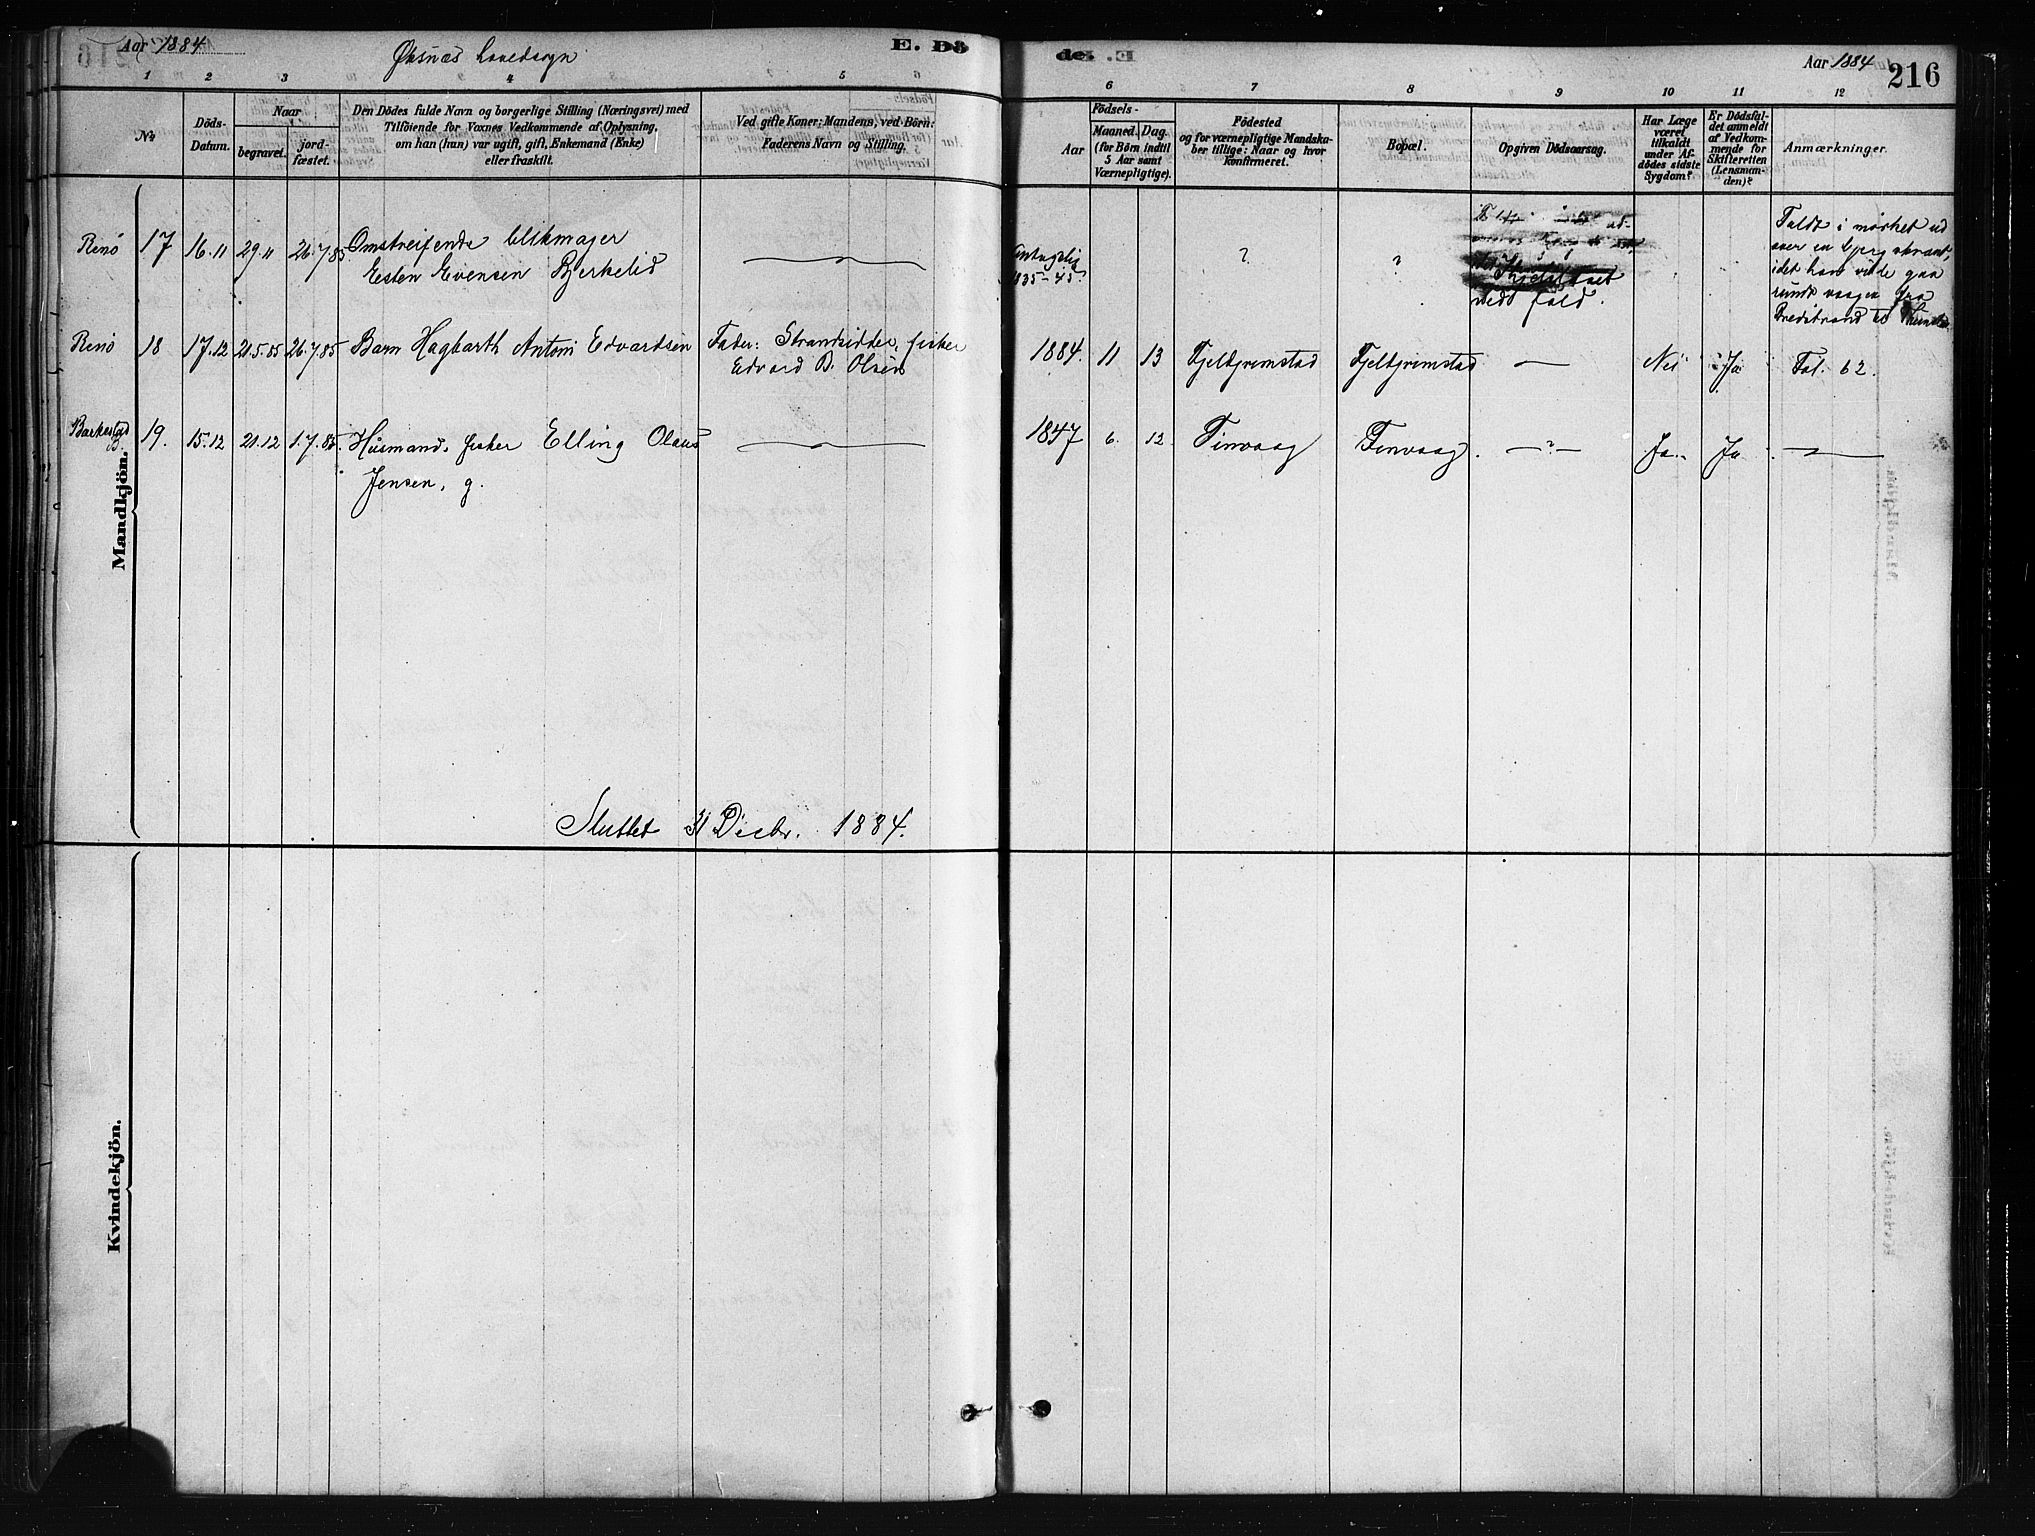 Aar 1884
Øksnæs hovedsogn
E. Dö
de. E.
Aar 1884
216
1 2 3 4 5 6 7 8 9 10 11 12
No
Döds-
Datum.
Naar
begravet.
jord-
fæstet.
Den Dödes fulde Navn og borgerlige Stilling (Næringsvei) med
Tilföiende for Voxnes Vedkommende af Oplysning,
om han (hun) var ugift, gift, Enkemand (Enke)
eller fraskilt.
Ved gifte Koner: Mandens, ved Börn:
Faderens Navn og Stilling.
Födsels-
Aar
Maaned. Dag.
(for Börn indtil
5 Aar samt
Værnepligtige).
Födested
og for værnepligtige Mandska-
ber tillige: Naar og hvor
konfirmeret.
Bopæl.
Opgiven Dödsaarsag.
Har Læge
været
tilkaldt
under Af-
dödes sidste
Sygdom?
Er Dödsfal-
det anmeldt
af Vedkom-
mende for
Skifteretten
(Lensman-
den)?
Anmærkninger.
Mandkjön.
Renö 17 16.11 29.11 26.7.85 Omstreifende blikmager
Esten Evensen Bjerkelid
Antagelig
1835-45
? ?
ned fald.
Faldt i mørket ud
over en bjerg skrænt,
idet han vilde gaa
rundt vaagen fra
Bredstrand til
Renö 18 17.12 21.5.85 26.7.85 Barn Hagbarth Antoni Edvardsen
Fader: Strandsidder, fisker
Edvard B. Olsen
1884. 11 13 Fjeldgrimstad Fjeldgrimstad — Nei Ja Fol. 62.
Barkestad 19. 15.12 21.12 1.7.85. Husmand, fisker Elling Olaus
Jensen, g.
1847 6. 12 Tinvaag Tinvaag. —?— Ja. Ja
Sluttet 31 Decbr. 1884.
Kvindekjön.